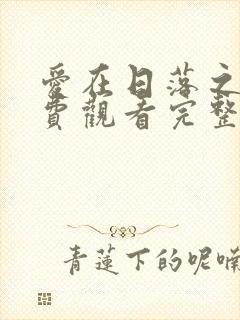 愛在日落之
費觀看完整
青蓮下的呢喃